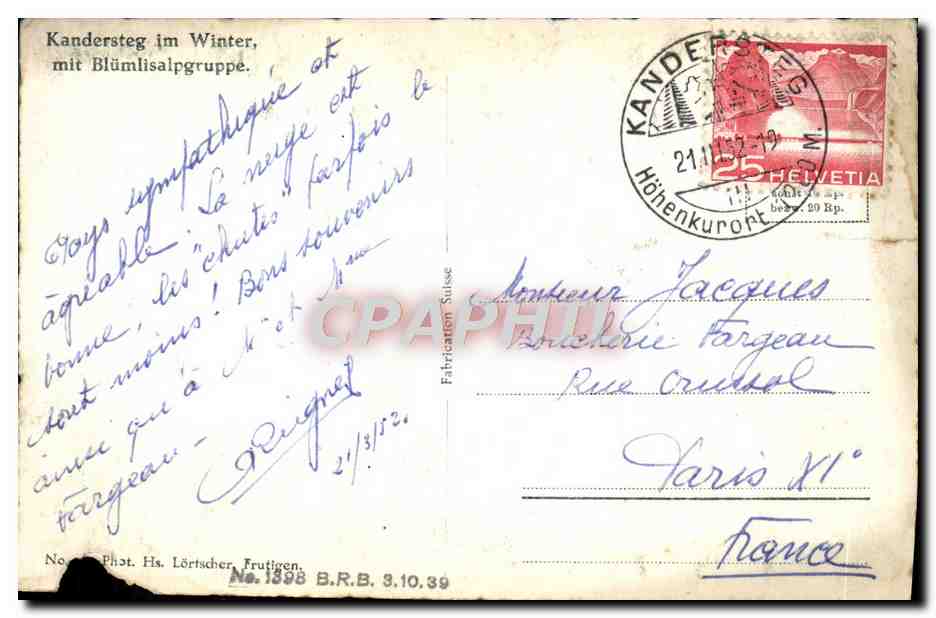 Kandersteg im Winter,
mit Blümlisalpgruppe.
Pays sympathique et
agréable. La neige est
bonne, les "chutes" parfois le
sont moins! Bons souvenirs
ainsi qu'à Mr et Mme
Fargeau -
21/3/52.
No. Phot. Hs. Lörtscher, Frutigen.
No. 1398 B.R.B. 3.10.39
Fabrication Suisse
KANDERSTEG
21.III.52-19
Höhenkurort 1200 M.
25 HELVETIA
sonst 10 Rp.
bezw. 20 Rp.
Monsieur Jacques
Boucherie Fargeau
Rue Crussol
Paris XI°
France
CPAPHIL